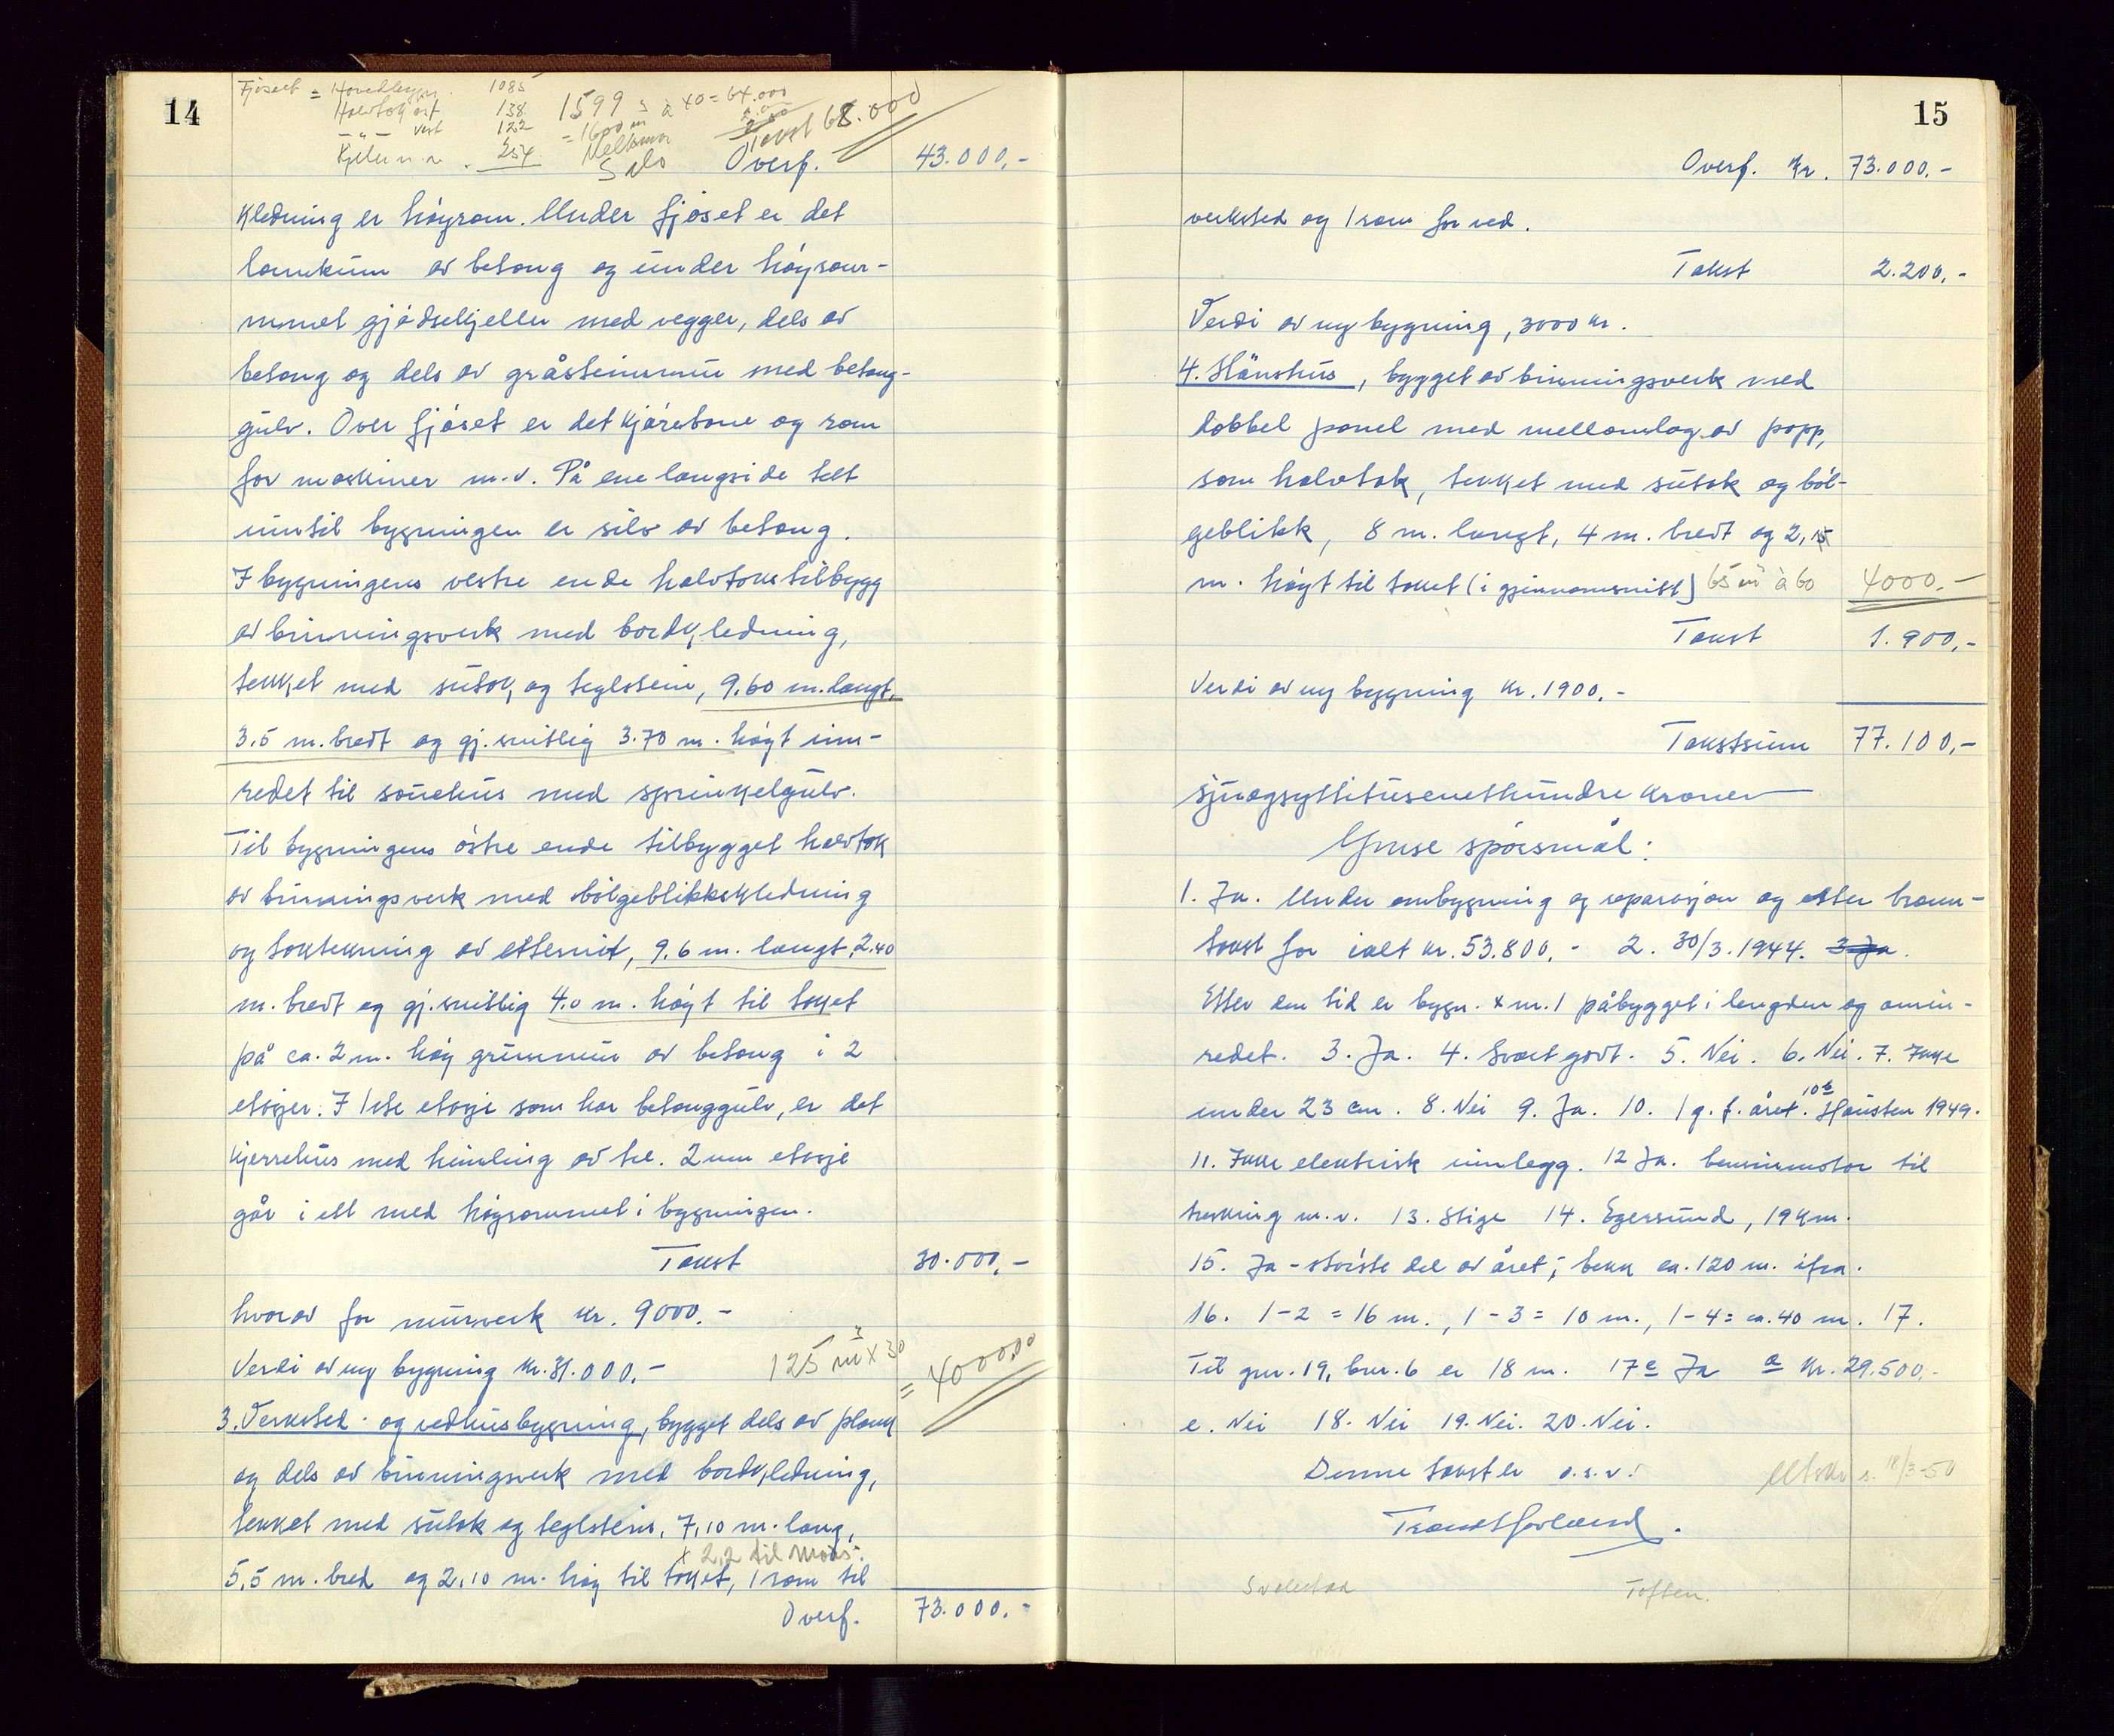 14
Fjöset = Hovedbygn. 1085
Halvtak öst 138
— " — vest 122
Kjeller n. r. 254
1599 à 40 = 64.000
= 1600 m
Silo
Takst 68.000
Overf. 43.000,-
kledning er höyrom. Under fjöset er det
lannkum av betong og under höyrom-
mmet gjödselkjeller med vegger, dels av
betong og dels av gråsteinsmur med betong-
gulv. Over fjöset er det kjörebane og rom
for maskiner m.v. På ene langside tett
inntil bygningen er silo av betong.
I bygningens vestre ende halvtakstilbygg
av binningsverk med bordkledning,
tekket med sutak og teglstein, 9,60 m. langt,
3,5 m. bredt og gj.snitlig 3.70 m. höyt inn-
redet til sauehus med sprinkelgulv.
Til bygningens östre ende tilbygget halvtak
av binningsverk med bölgeblikkskledning
og taktekning av etternit, 9,6 m. langt, 2.40
m. bredt og gj.snitlig 4.0 m. höyt til taket
på ca. 2 m. höy grunnmur av betong i 2
etasjer. I 1ste etasje som har betonggulv, er det
kjerrehus med himling av tre. 2nen etasje
går i ett med höyrommet i bygningen.
Takst 30.000,-
hvorav for murverk kr. 9000.-
Verdi av ny bygning kr. 31.000.-
125 m³ x 30 = 4000.00
3. Verksted- og vedhusbygning, bygget dels av plank
og dels av binningsverk med bordkledning,
tekket med sutak og teglstein, 7,10 m. lang,
x 2,2 til
5,5 m. bred og 2,10 m. höy til taket, 1 rom til
Overf. 73.000.-
15
Overf. kr. 73.000.-
verksted og 1 rom for ved.
Takst 2.200,-
Verdi av ny bygning, 3000 kr.
4. Hönshus, bygget av binningsverk med
dobbel panel med mellomlag av papp,
som halvtak, tekket med sutak og böl-
geblikk, 8 m. langt, 4 m. bredt og 2,15
m. höyt til taket (i gjennomsnitt) 65 m³ à 60 4000.-
Takst 1.900,-
Verdi av ny bygning kr. 1900.-
Takstsum 77.100,-
Sjuogsyttitusenethundre kroner
Ymse spörsmål:
1. Ja. Under ombygning og reparasjon og etter brann-
takst for ialt kr. 53.800.- 2. 30/3. 1944. 3 Ja.
Etter den tid er bygn. nr. 1 påbygget i lengden og omin-
redet. 3. Ja. 4. Svært godt. 5. Nei. 6. Nei. 7. Ikke
under 23 cm. 8. Nei 9. Ja. 10. 1 g. f. året. 10b Hausten 1949.
11. Ikke elektrisk innlegg. 12 Ja. bensinmotor til
treskning m.v. 13. Stige 14. Egersund, 19 km.
15. Ja - störste del av året; bekk ca. 120 m. ifra.
16. 1-2 = 16 m., 1-3 = 10 m., 1-4 = ca. 40 m. 17.
Til gnr. 19, bnr. 6 er 18 m. 17 c Ja a kr. 29.500.-
e. Nei 18. Nei 19. Nei. 20. Nei.
Denne takst er o.s.v.
Utskr. s. 18/3-50
Svalestad Toften.